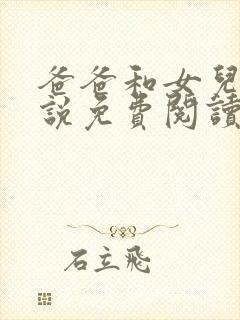 爸爸和女兒
說免費閱讀
石立飛